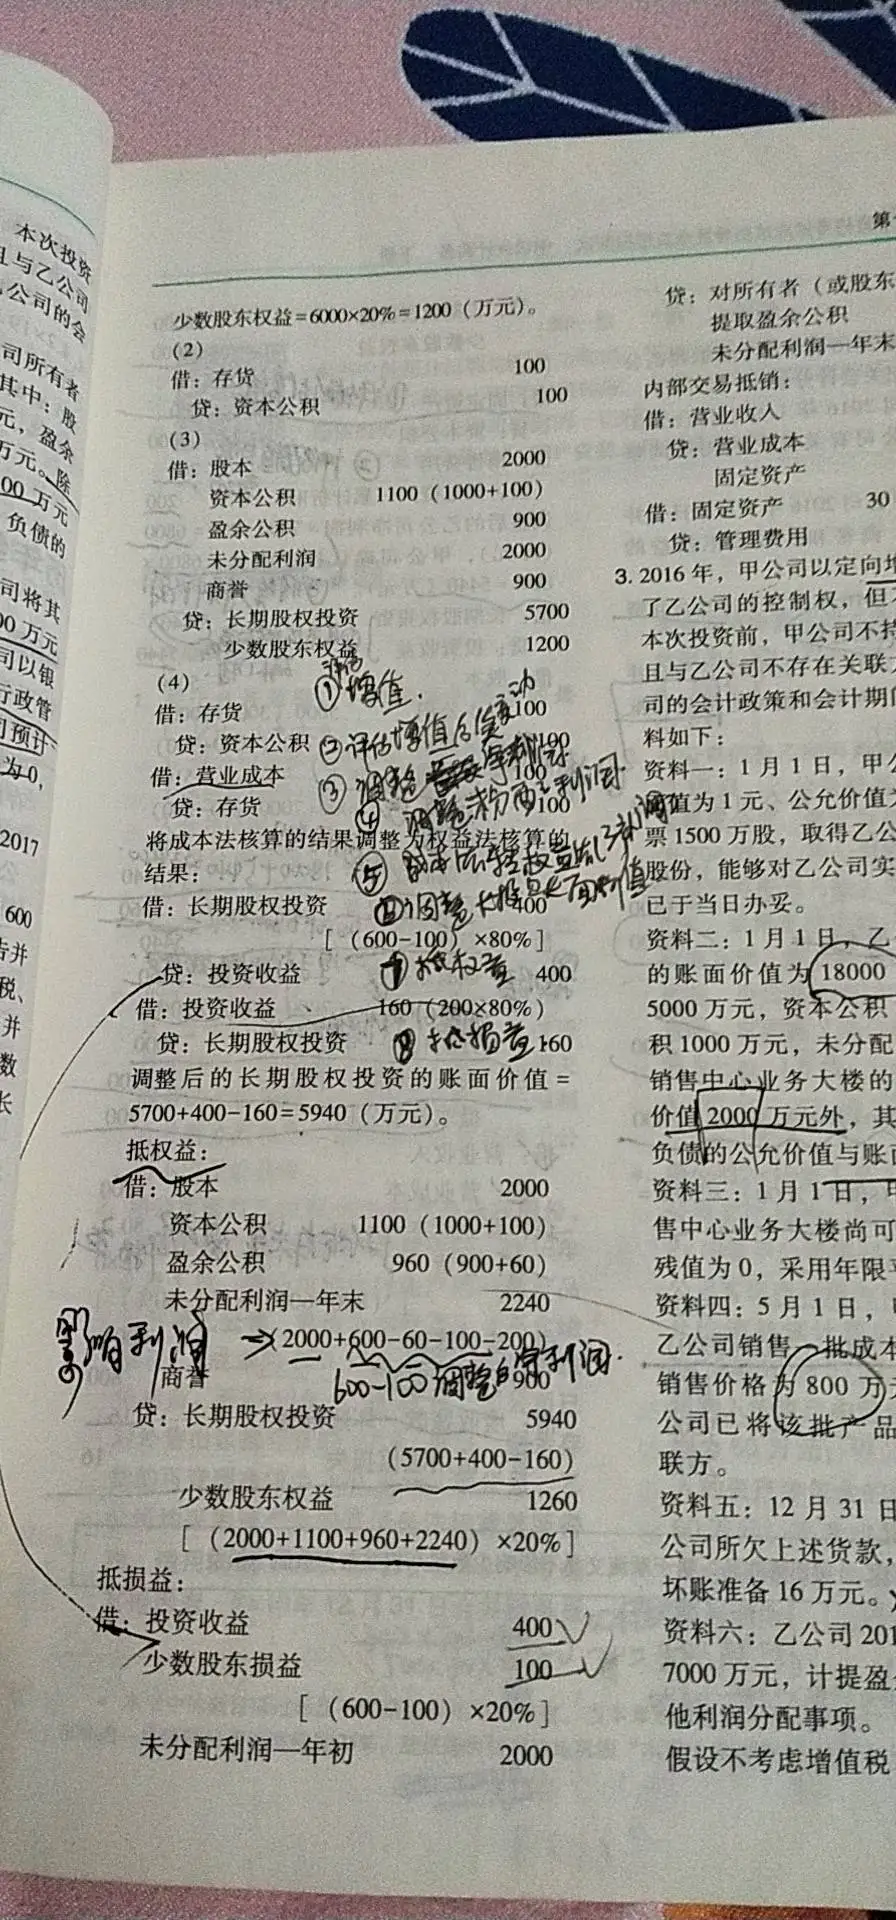 本次投资
且与乙公司
公司的会
司所有者
其中：股
元，盈余
万元。除
00万元
负债的
司将其
00万元
司以银
行政管
司预计
为0,
2017
600
告并
税、
并
数
长
少数股东权益=6000×20%=1200（万元）。
(2)
借：存货 100
贷：资本公积 100
(3)
借：股本 2000
资本公积 1100（1000+100）
盈余公积 900
未分配利润 2000
商誉 900
贷：长期股权投资 5700
少数股东权益 1200
(4) ①评估增值.
借：存货 100
贷：资本公积 100 ②评估增值的变动
借：营业成本 100 ③调整净利润
贷：存货 100 ④调整
将成本法核算的结果调整为权益法核算的
结果： ⑤
借：长期股权投资 400 ⑥调整长投
[（600-100）×80%]
贷：投资收益 400 ⑦抵权益
借：投资收益 160（200×80%）
贷：长期股权投资 160 ⑧抵损益
调整后的长期股权投资的账面价值=
5700+400-160=5940（万元）。
抵权益：
借：股本 2000
资本公积 1100（1000+100）
盈余公积 960（900+60）
未分配利润—年末 2240
影响利润 → （2000+600-60-100-200）
商誉 900
600-100调整的净利润.
贷：长期股权投资 5940
（5700+400-160）
少数股东权益 1260
[（2000+1100+960+2240）×20%]
抵损益：
借：投资收益 400
少数股东损益 100
[（600-100）×20%]
未分配利润—年初 2000
第
贷：对所有者（或股东
提取盈余公积
未分配利润—年末
内部交易抵销：
借：营业收入
贷：营业成本
固定资产
借：固定资产 30
贷：管理费用
3. 2016年，甲公司以定向增
了乙公司的控制权，但
本次投资前，甲公司不持
且与乙公司不存在关联方
司的会计政策和会计期间
料如下：
资料一：1月1日，甲公
面值为1元、公允价值为
票1500万股，取得乙公
股份，能够对乙公司实
已于当日办妥。
资料二：1月1日，乙
的账面价值为18000
5000万元，资本公积
积1000万元，未分配
销售中心业务大楼的
价值2000万元外，其
负债的公允价值与账面
资料三：1月1日，甲
售中心业务大楼尚可
残值为0，采用年限平
资料四：5月1日，甲
乙公司销售一批成本
销售价格为800万
公司已将该批产品
联方。
资料五：12月31日
公司所欠上述货款，
坏账准备16万元。
资料六：乙公司201
7000万元，计提盈
他利润分配事项。
假设不考虑增值税